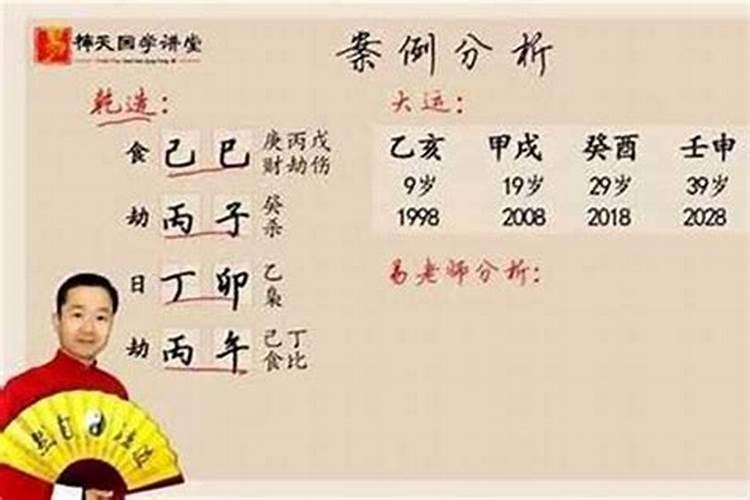 易
禅天国学讲堂
案例分析
乾造：
食 己 巳 庚 丙 戊
财 劫 伤
劫 丙 子 癸
杀
日 丁 卯 乙
枭
劫 丙 午 己 丁
食 比
大运：
乙亥 甲戌 癸酉 壬申
9岁 19岁 29岁 39岁
1998 2008 2018 2028
易老师分析：